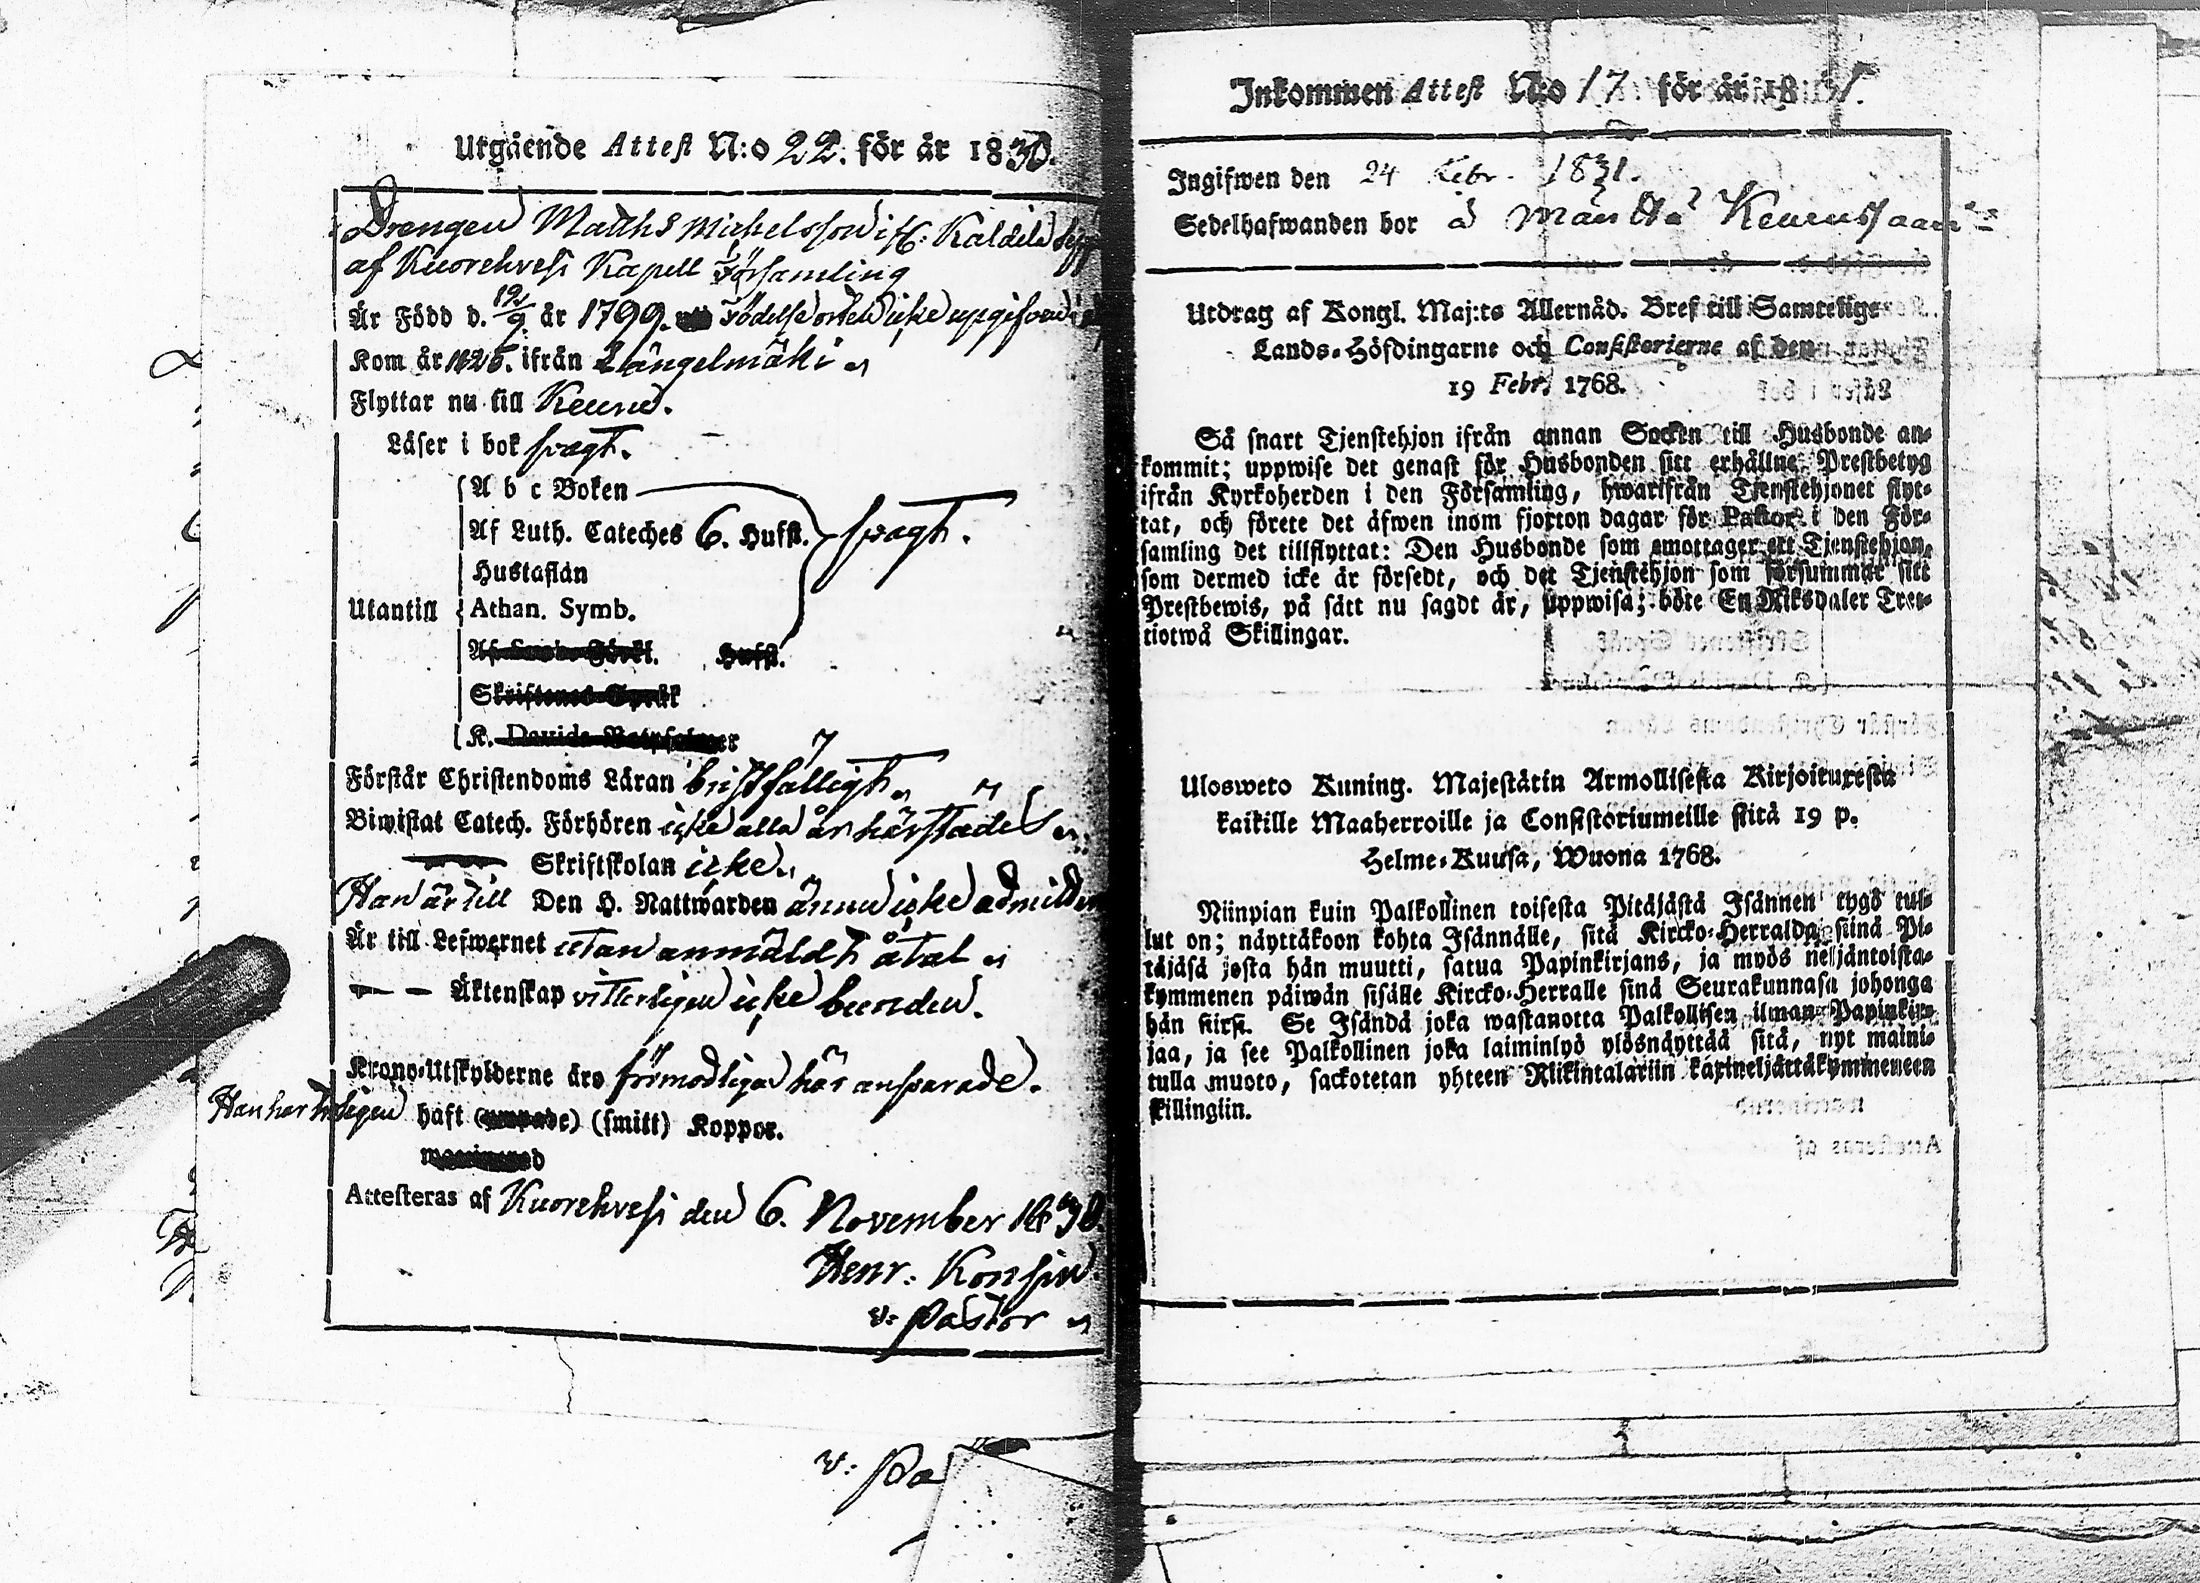 Utgående Attest N:o 22. för år 1830.
Drengen Matths Michelsson ifr: Kaldila
af Kuorehvesi Kapell Församling
Är Född d. 12/9 år 1799. Födelse orten icke upgifven
Kom år 1826. ifrån Längelmäki
Flyttar nu till Keuru.
Läser i bok svagt.
A b c Boken
Af Luth. Cateches 6. Hufst. svagt.
Hustaflan
Utantill Athan. Symb.
Hufst.
Förstår Christendoms Läran bristfälligt
Biwistat Catech. Förhören icke alla år härstädes
Skriftskolan icke
Han är till Den H. Nattwarden ännu icke admitteradt
Är till Lefwernet utan anmäldt åtal
— — Äktenskap vitterligen icke bunden.
Krono-Utskylderne äro förmodligen här ansvarade.
Han har troligen haft (smitt) Koppor.
Attesteras af Kuorehvesi den 6. November 1830.
Henr: Konsin
v: Pastor
v: Pa
Inkommen Attest N:o 17 för år 1831.
Ingifwen den 24 Febr. 1831.
Sedelhafwanden bor å Mänttä Keurus
Utdrag af Kongl. Maj:ts Allernåd. Bref till Samtelige
Lands-Höfdingarne och Consistorierne af den
19 Febr. 1768.
Så snart Tjenstehjon ifrån annan Socken till Husbonde an-
kommit; uppwise det genast för Husbonden sitt erhållne Prestbetyg
ifrån Kyrkoherden i den Församling, hwarifrån Tjenstehjonet flyt-
tat, och förete det äfwen inom fjorton dagar för Pastor i den För-
samling det tillflyttat: Den Husbonde som emottager ett Tjenstehjon,
som dermed icke är försedt, och det Tjenstehjon som försummar sitt
Prestbewis, på sätt nu sagdt är, uppwisa; böte En Riksdaler Tret-
tiotwå Skillingar.
Ulosweto Kuning. Majestätin Armollisesta Kirjoituxesta
kaikille Maaherroille ja Consistoriumeille siitä 19 p.
Helme-Kuusa, Wuona 1768.
Niinpian kuin Palkollinen toisesta Pitäjästä Isännen tygö tul-
lut on; näyttäkoon kohta Isännälle, sitä Kircko-Herralda siinä Pi-
täjäsä josta hän muutti, satua Papinkirjans, ja myös neljäntoista-
kymmenen päiwän sisälle Kircko-Herralle siinä Seurakunnasa johonga
hän siirsi. Se Isändä joka wastanotta Palkollisen ilman Papinkir-
jaa, ja see Palkollinen joka laiminlyö ylösnäyttää sitä, nyt maini-
tulla muoto, sackotetan yhteen Riikintalariin kaxineljättäkymmeneen
skillingiin.